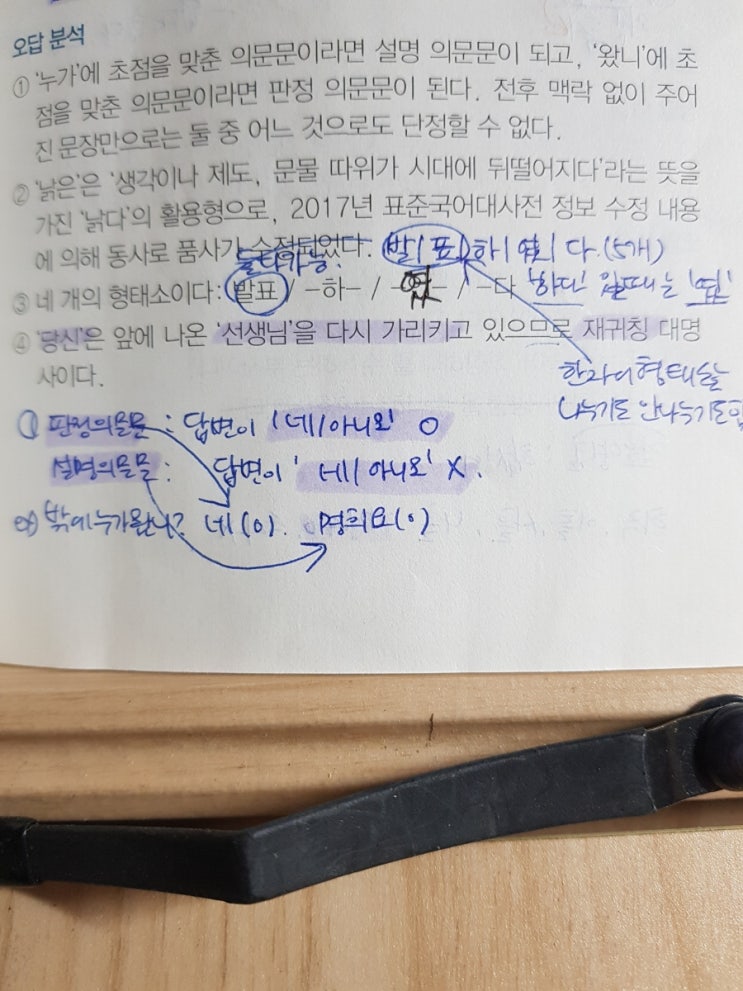 오답 분석
① '누가'에 초점을 맞춘 의문문이라면 설명 의문문이 되고, '왔니'에 초
점을 맞춘 의문문이라면 판정 의문문이 된다. 전후 맥락 없이 주어
진 문장만으로는 둘 중 어느 것으로도 단정할 수 없다.
② '낡은'은 '생각이나 제도, 문물 따위가 시대에 뒤떨어지다'라는 뜻을
가진 '낡다'의 활용형으로, 2017년 표준국어대사전 정보 수정 내용
에 의해 동사로 품사가 수정되었다. 발|표|하|였|다.(5개)
둘다가능.
③ 네 개의 형태소이다: 발표 / -하- / -였- / -다 '하다' 일때는 '였'
④ '당신'은 앞에 나온 '선생님'을 다시 가리키고 있으므로 재귀칭 대명
사이다.
한자어 형태소는
나누기도 안나누기도
① 판정의문문 : 답변이 '네/아니오' O
설명의문문 : 답변이 '네/아니오' X.
예) 밖에 누가 왔니? 네(o). 명희요(o)